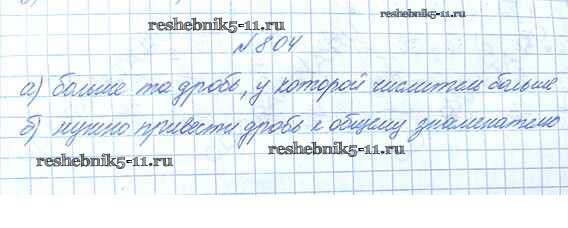 reshebnik5-11.ru
reshebnik5-11.ru
№ 804
а) больше та дробь, у которой числитель больше
б) нужно привести дробь к общему знаменателю
reshebnik5-11.ru
reshebnik5-11.ru